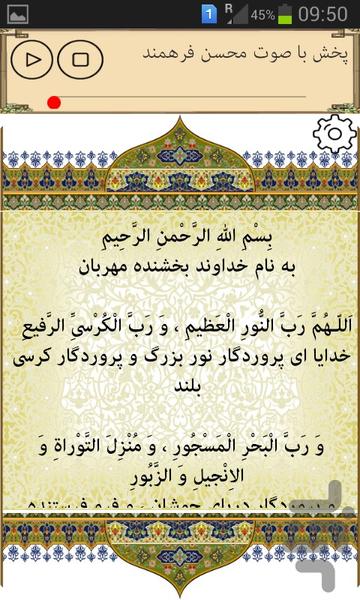 1 R 45% 09:50
پخش با صوت محسن فرهمند
بِسْمِ اللهِ الرَّحْمنِ الرَّحِيمِ
به نام خداوند بخشنده مهربان
اَللّهُمَّ رَبَّ النُّورِ الْعَظيمِ ، وَ رَبَّ الْكُرْسيِّ الرَّفيعِ
خدایا ای پروردگار نور بزرگ و پروردگار کرسی
بلند
وَ رَبَّ الْبَحْرِ الْمَسْجُورِ ، وَ مُنْزِلَ التَّوْراةِ وَ
الاِنْجيلِ وَ الزَّبُورِ
و پروردگار دریای جوشان و فرستنده